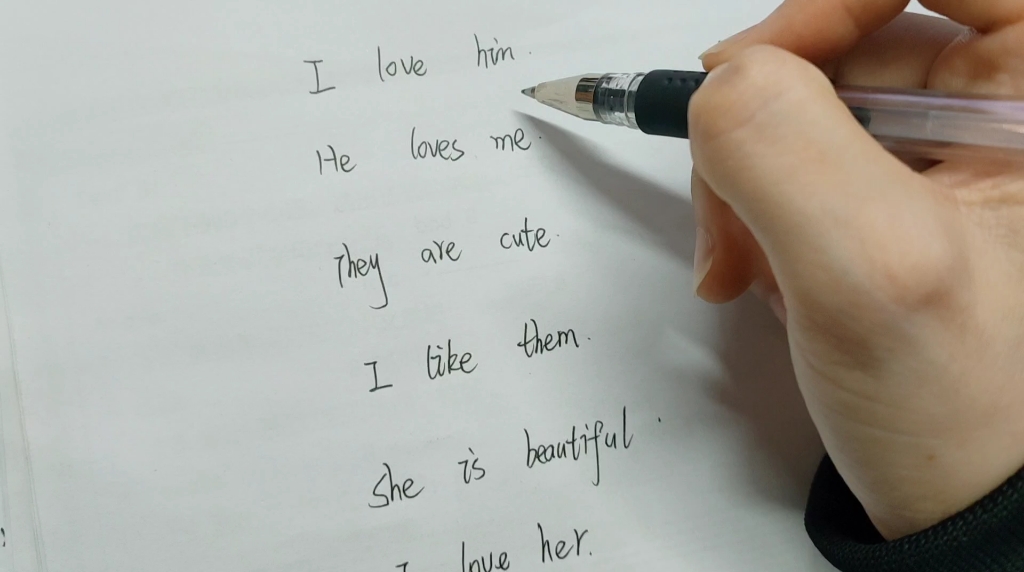 I love him.
He loves me.
They are cute.
I like them.
She is beautiful.
I love her.